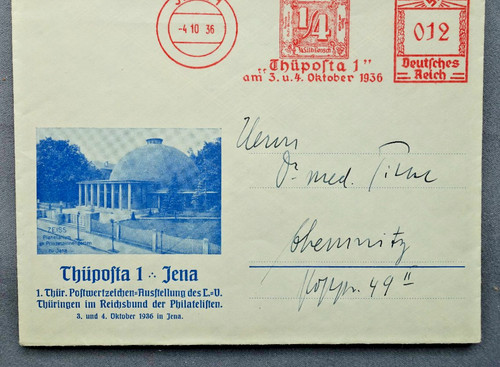 -4 10 36
1/4
012
Deutsches
Reich
„Thüposta 1"
am 3. u. 4. Oktober 1936
Herrn
Dr. med.
Chemnitz
49 II
ZEISS
Planetarium
zu Jena
Thüposta 1 ∴ Jena
1. Thür. Postwertzeichen=Ausstellung des L.=V.
Thüringen im Reichsbund der Philatelisten.
3. und 4. Oktober 1936 in Jena.